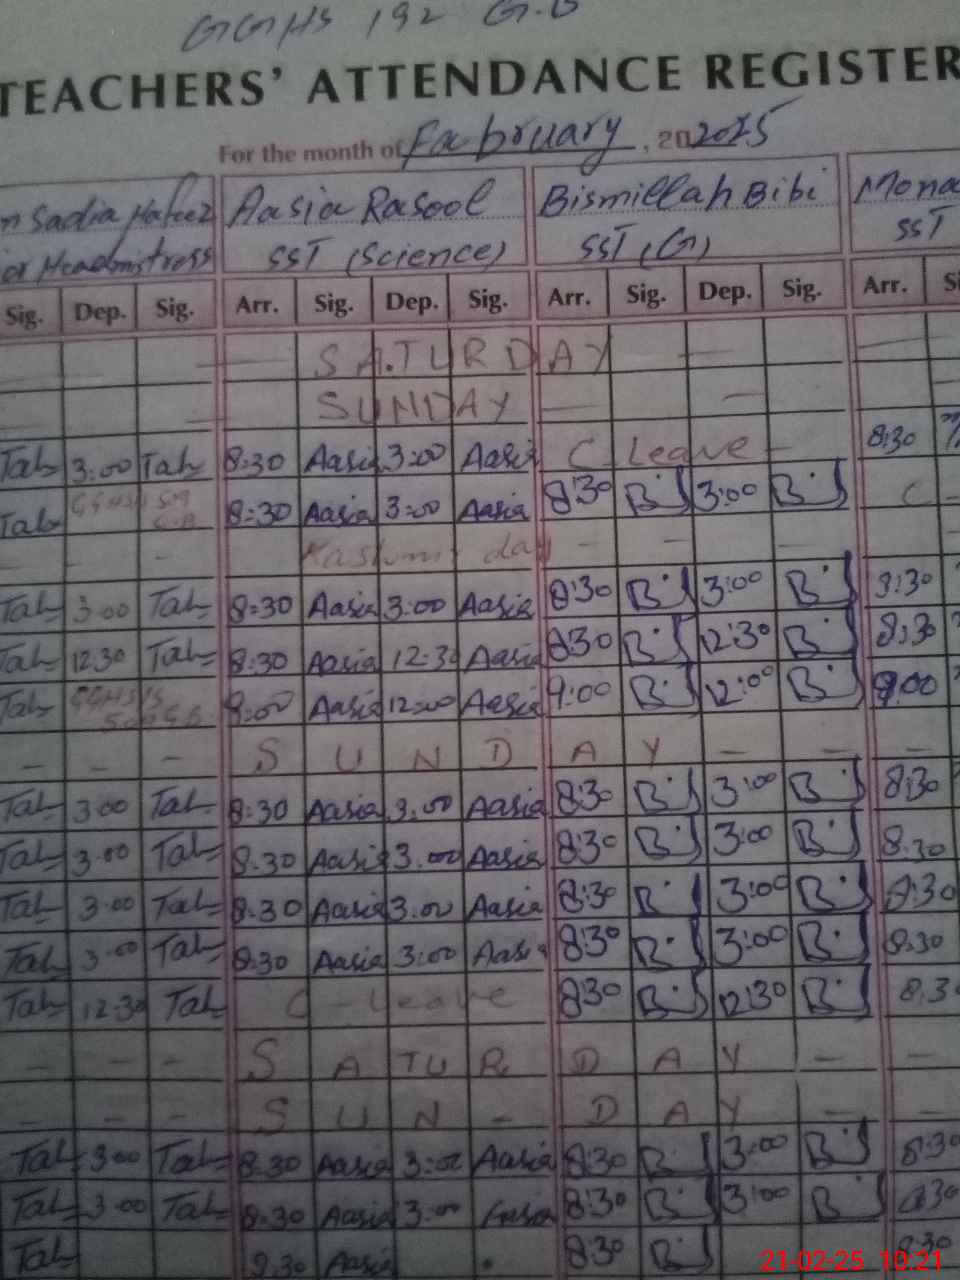 GGHS 192 G.B
TEACHERS' ATTENDANCE REGISTER
For the month of Fabruary, 20 2025
n Sadia Hafeez Aasia Rasool Bismillah Bibi Mona
or Headmistress SST (Science) SST (G) SST
Sig. Dep. Sig. Arr. Sig. Dep. Sig. Arr. Sig. Dep. Sig. Arr. Si
— — — — SATURDAY — —
— — — SUNDAY — —
Tah 3:00 Tah 8:30 Aasia 3:00 Aasia C Leave - 8:30
Tah 8:30 Aasia 3:00 Aasia 8:30 B 3:00 B C -
- - Kashmir day - - -
Tah 3.00 Tah 8:30 Aasia 3:00 Aasia 8:30 B 3:00 B 8:30
Tah 12:30 Tah 8:30 Aasia 12:30 Aasia 8:30 B 12:30 B 8:30
Tah 8:00 Aasia 12:00 Aasia 9:00 B 12:00 B 9:00
- - - S U N D A Y - - -
Tah 3.00 Tah 8:30 Aasia 3:00 Aasia 8:30 B 3:00 B 8:30
Tah 3.00 Tah 8.30 Aasia 3.00 Aasia 8:30 B 3:00 B 8.30
Tah 3.00 Tah 8.30 Aasia 3.00 Aasia 8:30 B 3:00 B 8:30
Tah 3.00 Tah 8:30 Aasia 3:00 Aasia 8:30 B 3:00 B 8:30
Tah 12.30 Tah C - Leave 8:30 B 12:30 B 8.3
- - - S A TU R D A Y - -
- - - S U N - D A Y - -
Tah 3.00 Tah 8.30 Aasia 3:00 Aasia 8:30 B 3:00 B 8:30
Tah 3.00 Tah 8.30 Aasia 3:00 Aasia 8:30 B 3:00 B 8:30
Tah 8.30 Aasia . 8:30 B 8:30
21-02-25 10:21